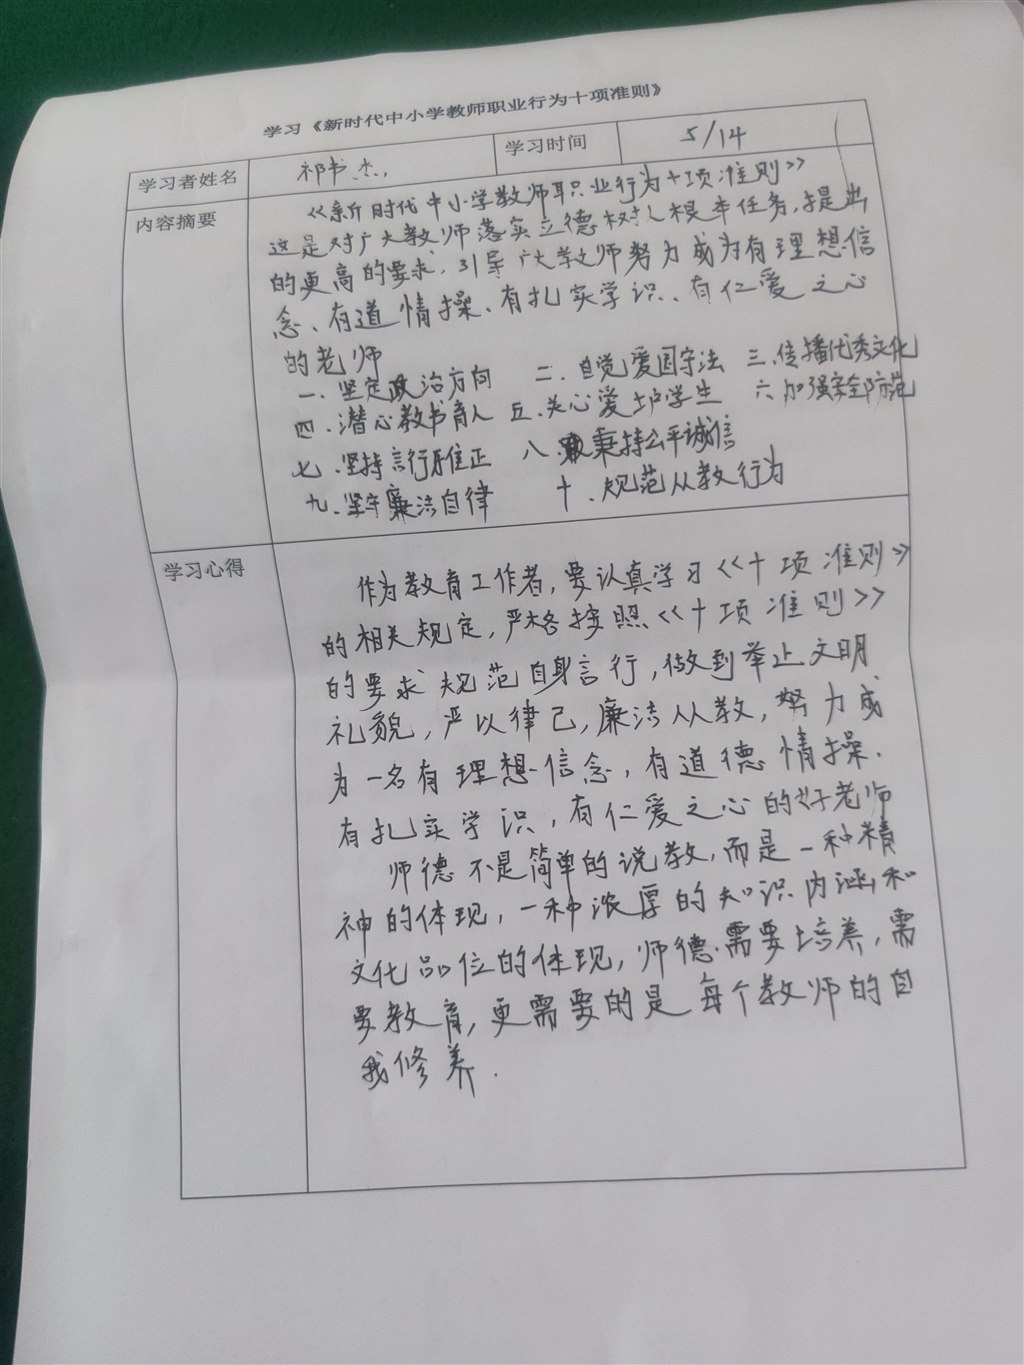 学习《新时代中小学教师职业行为十项准则》
学习者姓名 祁书杰 学习时间 5/14
内容摘要
《新时代中小学教师职业行为十项准则》
这是对广大教师落实立德树人根本任务，提出
的更高的要求，引导广大教师努力成为有理想信
念、有道情操、有扎实学识、有仁爱之心
的老师
一、坚定政治方向 二、自觉爱国守法 三、传播优秀文化
四、潜心教书育人 五、关心爱护学生 六、加强安全防范
七、坚持言行雅正 八、秉持公平诚信
九、坚守廉洁自律 十、规范从教行为
学习心得
作为教育工作者，要认真学习《十项准则》
的相关规定，严格按照《十项准则》
的要求规范自身言行，做到举止文明
礼貌，严以律己，廉洁从教，努力成
为一名有理想信念，有道德情操、
有扎实学识，有仁爱之心的好老师
师德不是简单的说教，而是一种精
神的体现，一种浓厚的知识内涵和
文化品位的体现，师德需要培养，需
要教育，更需要的是每个教师的自
我修养.